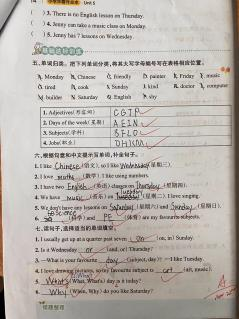 Unit 5
( ) 3. There is no English lesson on Thursday.
( ) 4. Jenny can take a music class on Monday.
( ) 5. Jenny has 7 lessons on Wednesday.
五、单词归类。把下列单词分类,将其大写字母编号写在表格相应位置。
A. Monday B. Chinese C. friendly D. painter E. Friday F. music
G. tired H. cook I. Sunday J. kind K. doctor L. computer
M. builder N. Saturday O. English P. shy
1. Adjectives(形容词) C G J P
2. Days of the week(星期) A E I N
3. Subjects(学科) B F L O
4. Jobs(职业) D H K M
六、根据句意和中文提示写单词,补全句子。
1. I like Chinese (语文), so I like Wednesday (星期三).
2. I love maths (数学). I like using numbers.
3. We have two English (英语) classes on Thursday (星期四).
4. We have music (音乐) on Tuesday (星期二). I like singing.
5. We don't have any lessons on Saturday (星期六) and Sunday (星期日).
6. Science (科学) and PE (体育) are my favourite subjects.
七、读句子,选择适当的单词填空。
1. I usually get up at a quarter past seven on (on, in) Sunday.
2. Is it Wednesday or (and, or) Thursday?
3. —What is your favourite day (subject, day)? —I like Tuesday.
4. I love drawing pictures, so my favourite subject is art (art, music).
5. What's (What, What's) day is it today?
6. Why (When, Why) do you like Saturday?